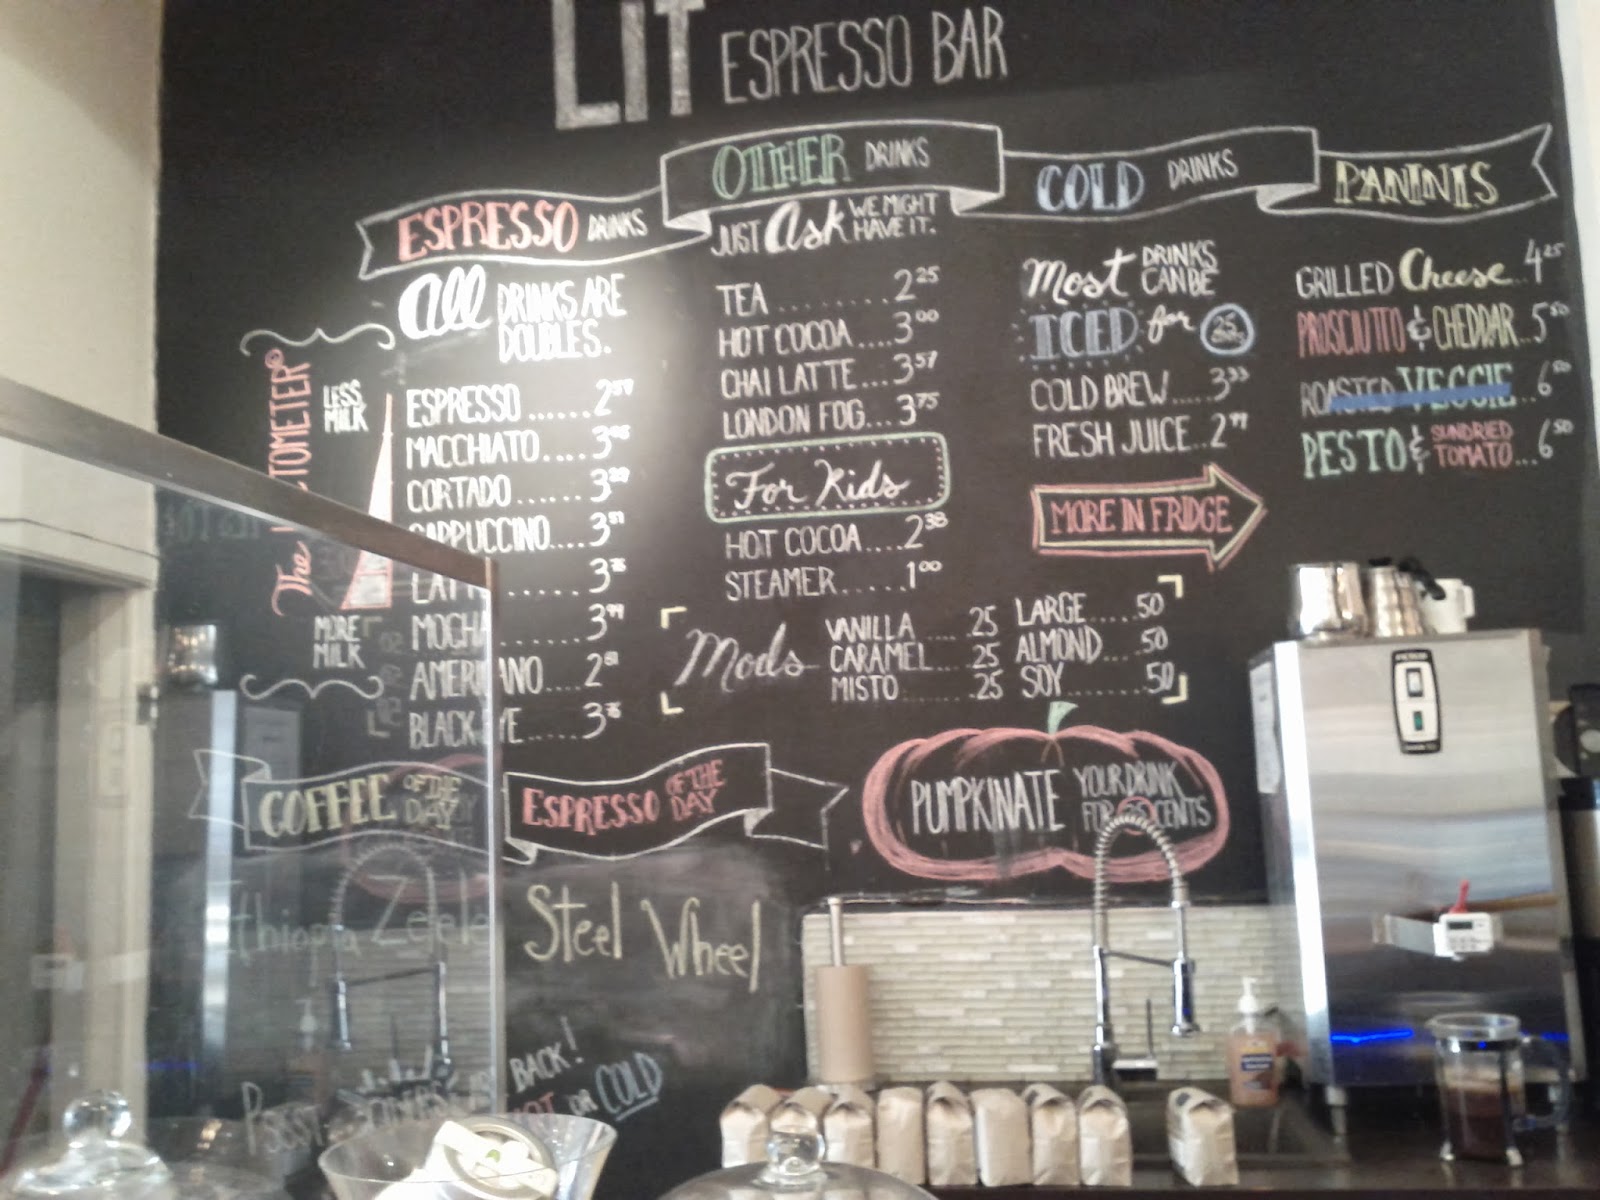 LiT ESPRESSO BAR
ESPRESSO DRINKS
All DRINKS ARE DOUBLES.
The
LESS MILK
MORE MILK
ESPRESSO ......
MACCHIATO .....
CORTADO ......
CAPPUCCINO....3 51
LATTE ...... 3
MOCHA ..... 3
AMERICANO .... 2
BLACK EYE ..... 3
OTHER DRINKS
JUST Ask WE MIGHT HAVE IT.
TEA ......... 2 25
HOT COCOA ....3 00
CHAI LATTE ...3 57
LONDON FOG...3 75
For Kids
HOT COCOA ....2 38
STEAMER ......1 00
COLD DRINKS
Most DRINKS CAN BE
ICED for 25
COLD BREW.....3 33
FRESH JUICE..2
MORE IN FRIDGE
PANINIS
GRILLED Cheese...4 25
PROSCIUTTO & CHEDDAR..5 50
ROASTED VEGGIE..6 50
PESTO & SUNDRIED TOMATO...6 50
Mods
VANILLA .... 25
CARAMEL... 25
MISTO ......25
LARGE.....50
ALMOND....50
SOY ........50
COFFEE OF THE DAY
Ethiopia
ESPRESSO OF THE DAY
Steel Wheel
PUMPKINATE YOUR DRINK FOR CENTS
PSSST
BACK!
HOT or COLD